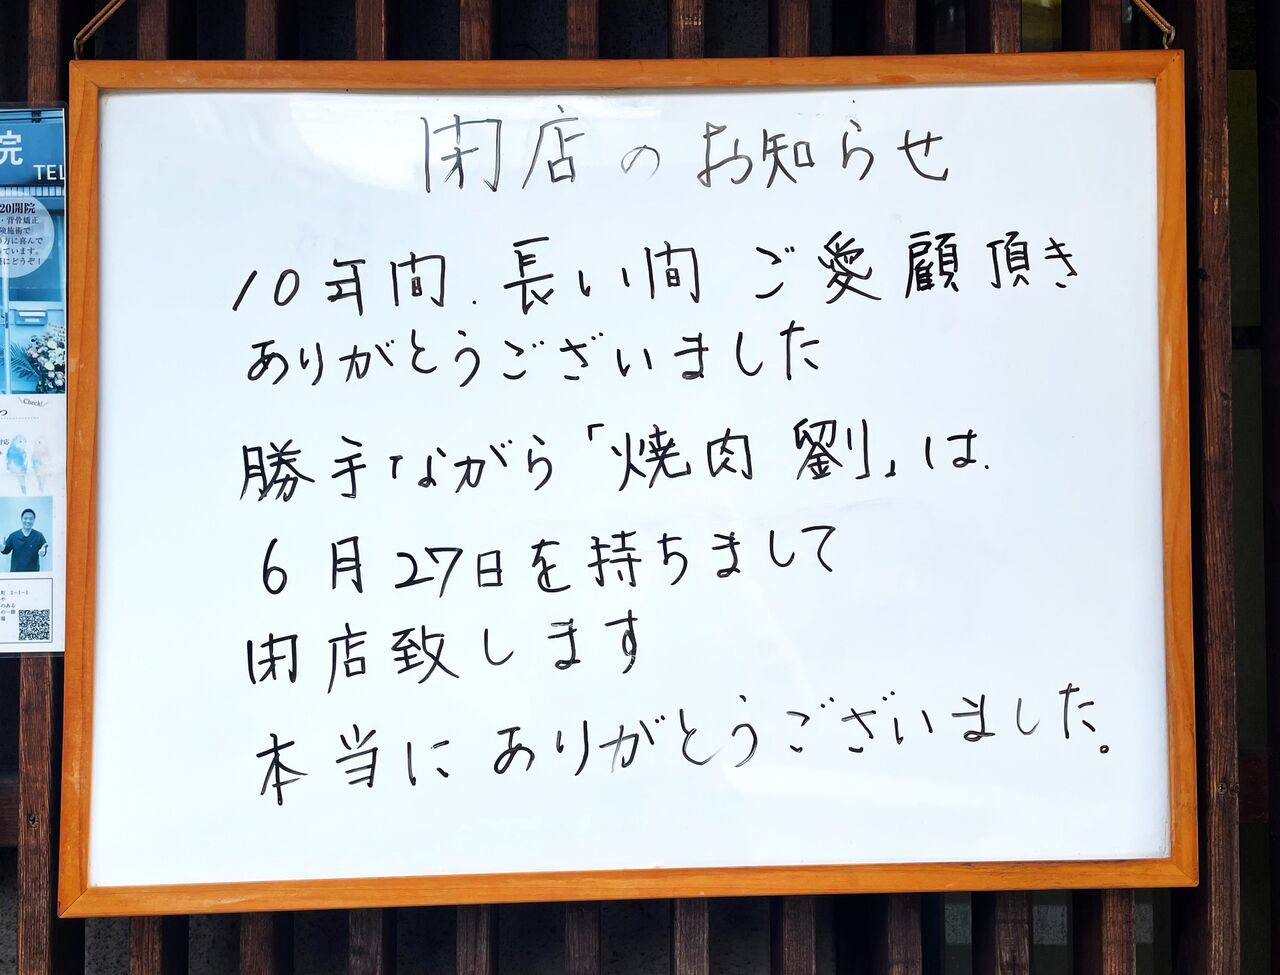 閉店のお知らせ
10年間、長い間 ご愛顧頂き
ありがとうございました
勝手ながら「焼肉 劉」は、
6月27日を持ちまして
閉店致します
本当にありがとうございました。
院
TEL
20開院
・背骨矯正
険施術で
の方に喜んで
ています。
にどうぞ!
Check!